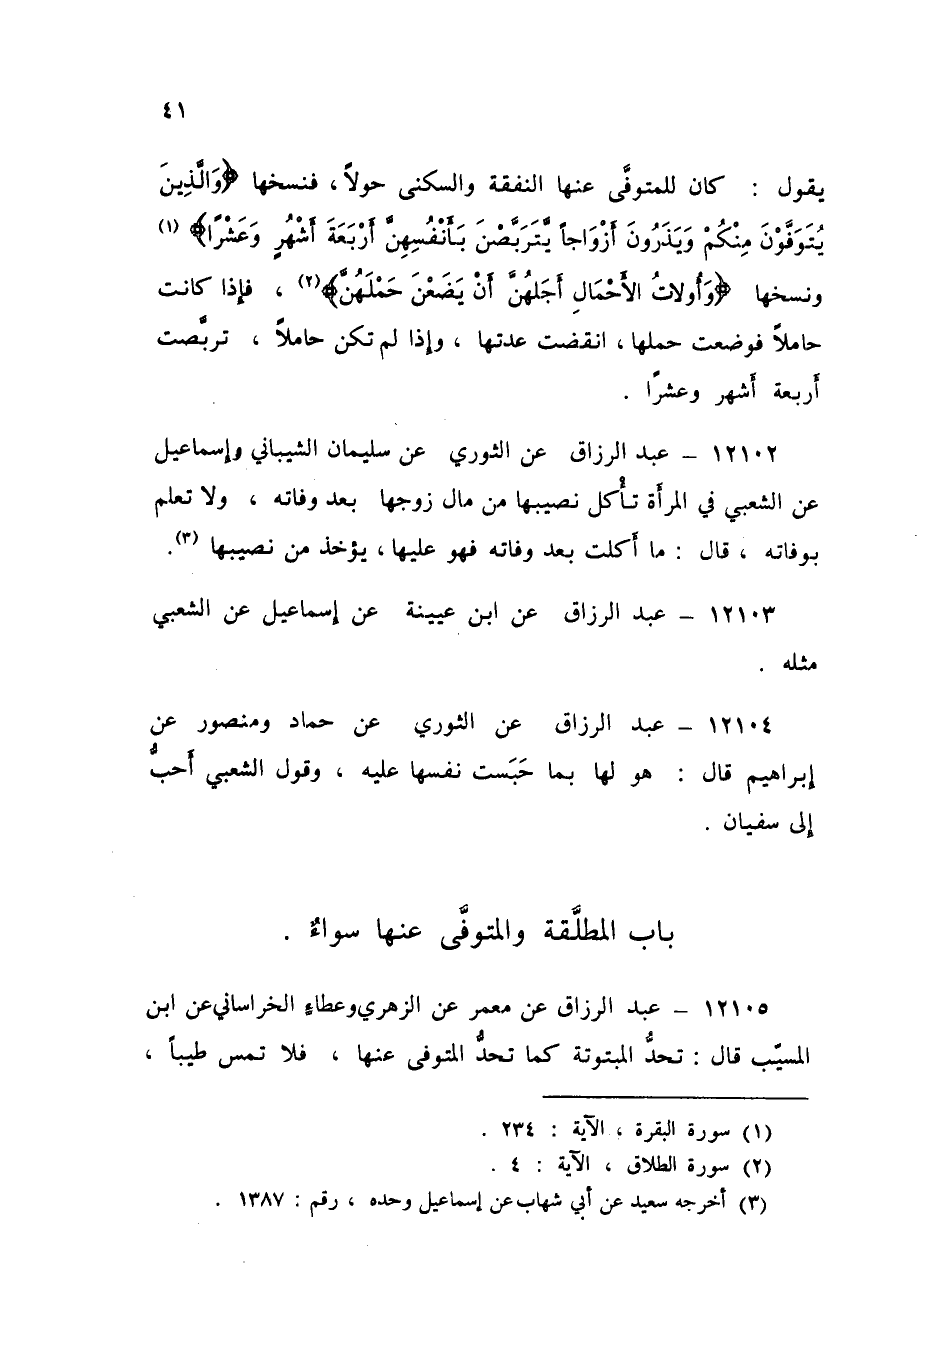 ٤١
يقول : كان للمتوفَّى عنها النفقة والسكنى حولاً ، فنسخها ﴿وَالَّذِينَ
يُتَوَفَّوْنَ مِنْكُمْ وَيَذَرُونَ أَزْوَاجاً يَّتَرَبَّصْنَ بِأَنْفُسِهِنَّ أَرْبَعَةَ أَشْهُرٍ وَعَشْرًا﴾ (١)
ونسخها ﴿وَأُولاتُ الأَحْمَالِ أَجَلهُنَّ أَنْ يَضَعْنَ حَمْلَهُنَّ﴾(٢) ، فإذا كانت
حاملاً فوضعت حملها ، انقضت عدتها ، وإذا لم تكن حاملاً ، تربَّصت
أربعة أشهر وعشرًا .
١٢١٠٢ – عبد الرزاق عن الثوري عن سليمان الشيباني وإسماعيل
عن الشعبي في المرأة تأْكل نصيبها من مال زوجها بعد وفاته ، ولا تعلم
بوفاته ، قال : ما أكلت بعد وفاته فهو عليها ، يؤخذ من نصيبها (٣).
١٢١٠٣ – عبد الرزاق عن ابن عيينة عن إسماعيل عن الشعبي
مثله .
١٢١٠٤ – عبد الرزاق عن الثوري عن حماد ومنصور عن
إبراهيم قال : هو لها بما حَبَست نفسها عليه ، وقول الشعبي أَحبُّ
إلى سفيان .
باب المطلَّقة والمتوفَّى عنها سواءٌ .
١٢١٠٥ – عبد الرزاق عن معمر عن الزهري وعطاءِ الخراساني عن ابن
المسيّب قال : تحدُّ المبتوتة كما تحدُّ المتوفى عنها ، فلا تمس طيباً ،
(١) سورة البقرة ، الآية : ٢٣٤ .
(٢) سورة الطلاق ، الآية : ٤ .
(٣) أخرجه سعيد عن أبي شهاب عن إسماعيل وحده ، رقم : ١٣٨٧ .